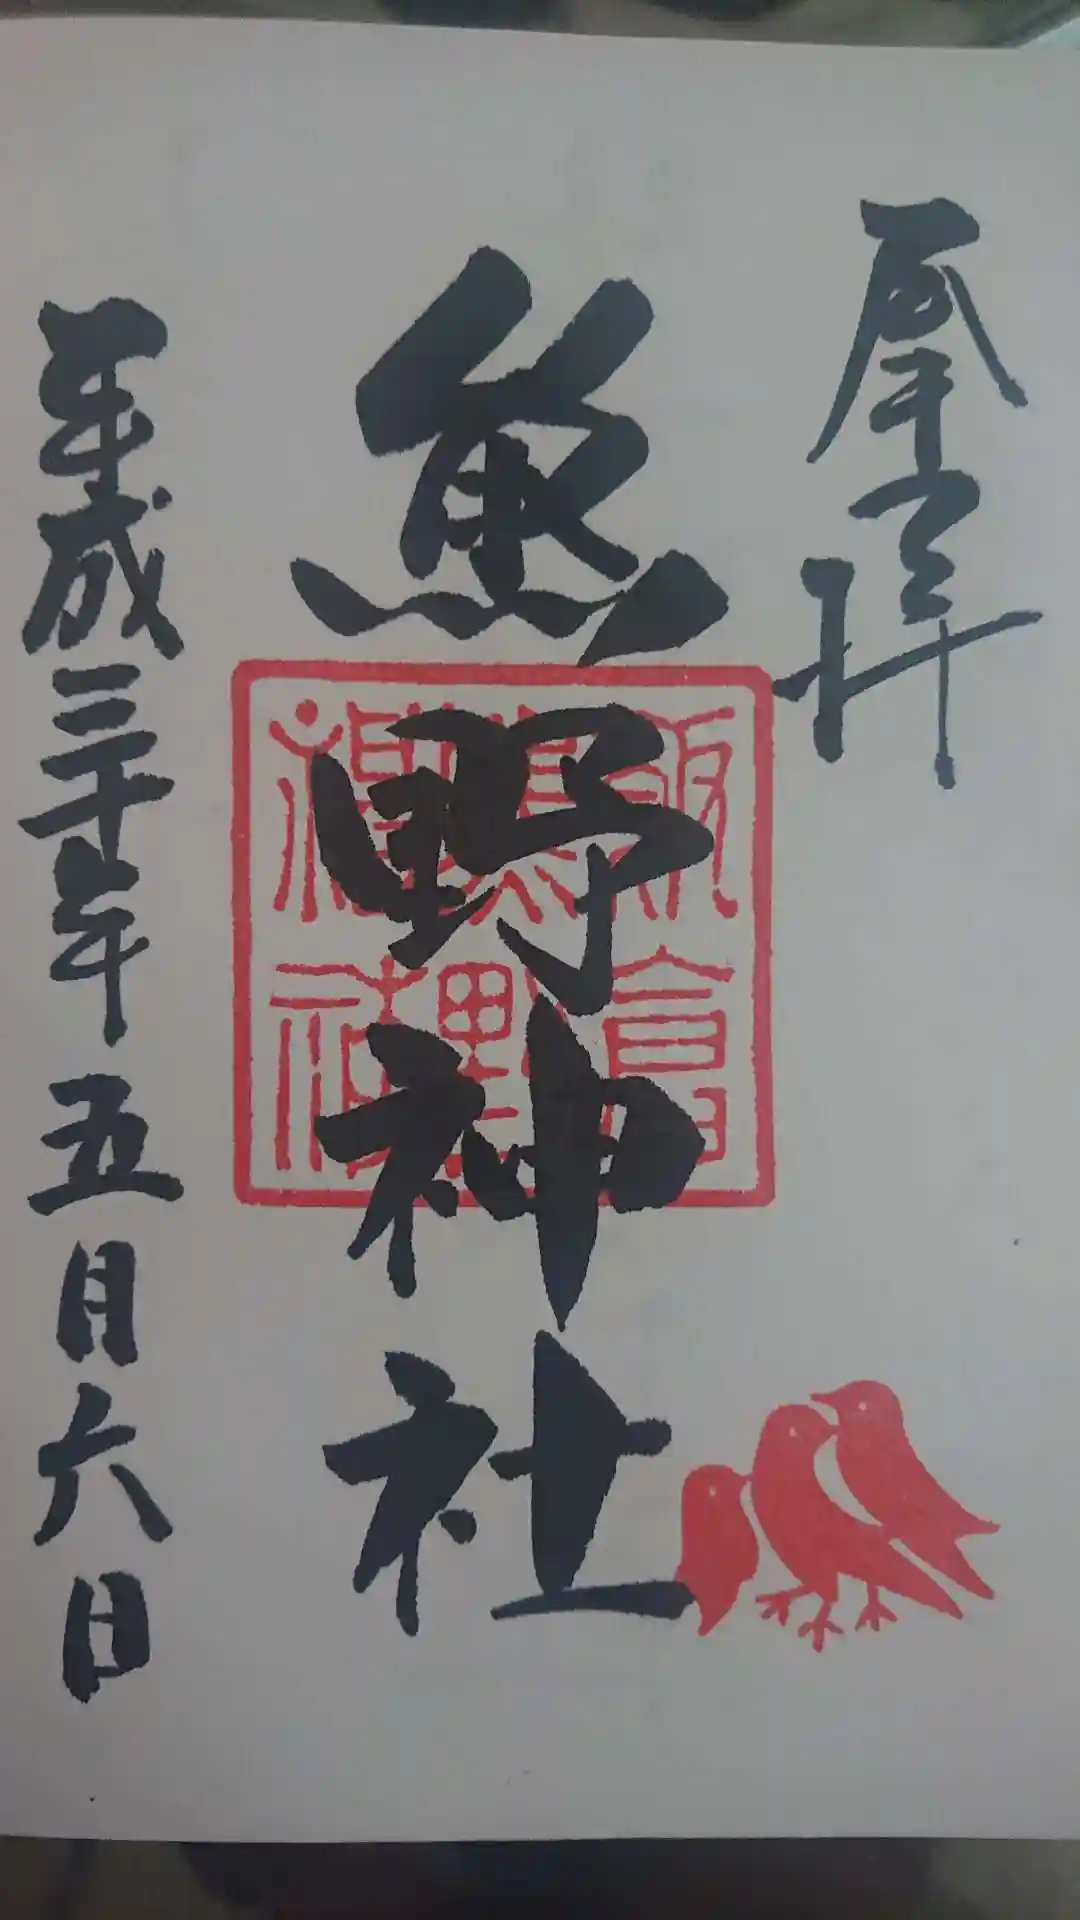 奉拝
熊野神社
飯倉
熊野
神社
平成三十年五月六日